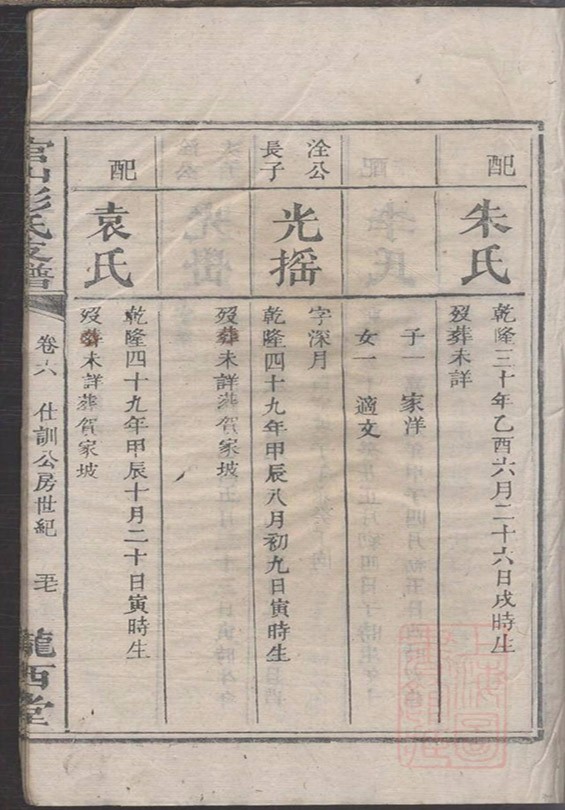 配
朱氏
乾隆三十年乙酉六月二十六日戌時生
歿葬未詳
子一 家洋
女一 適文
洤公
長子
光摇
字深月
乾隆四十九年甲辰八月初九日寅時生
歿葬未詳葬賀家坡
配
袁氏
乾隆四十九年甲辰十月二十日寅時生
歿葬未詳葬賀家坡
官山彭氏支譜
卷六 仕訓公房世紀
隴西堂